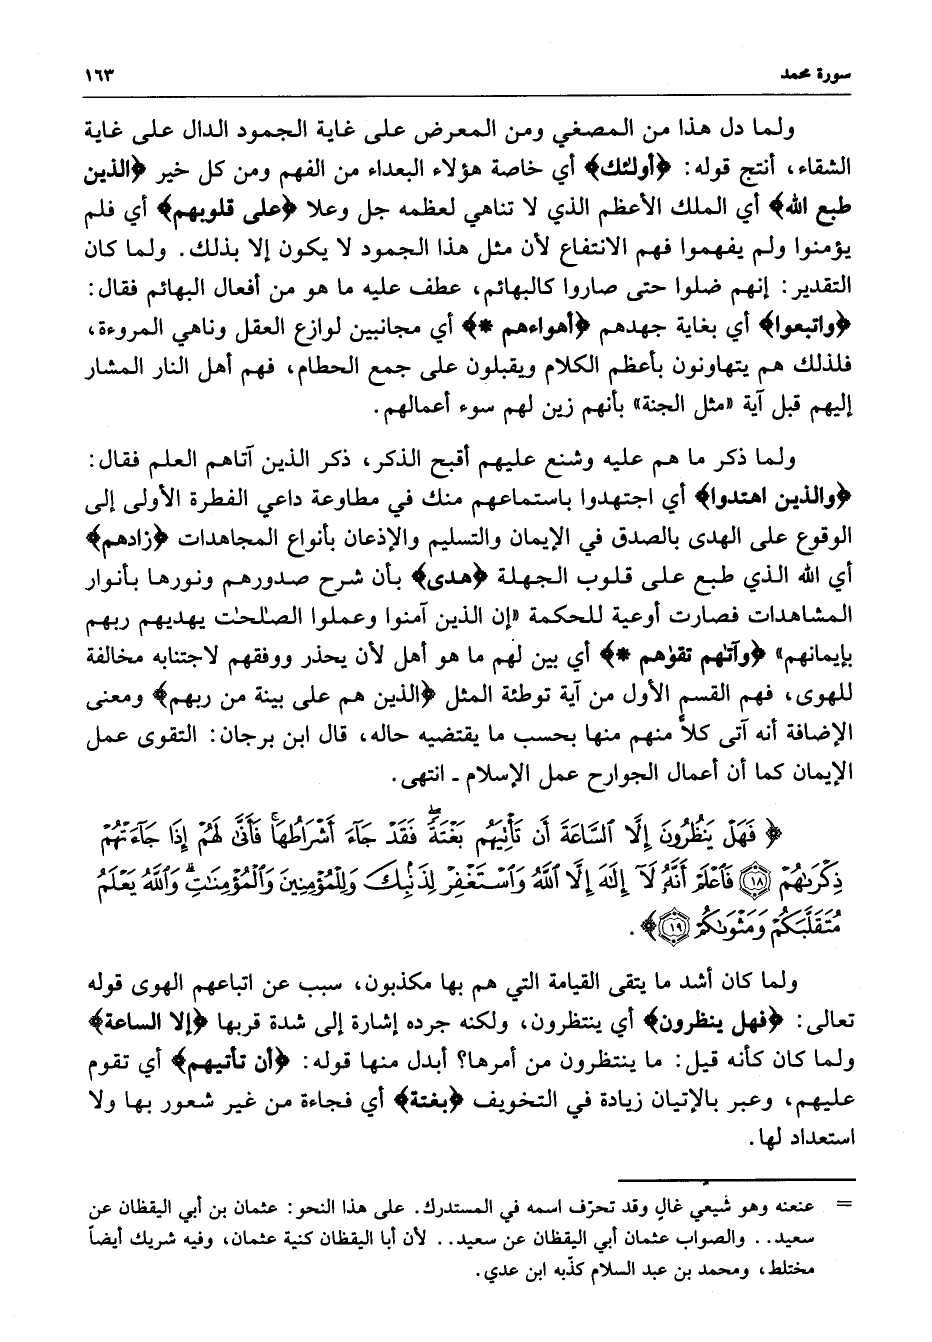 سورة محمد ١٦٣
ولما دل هذا من المصغي ومن المعرض على غاية الجمود الدال على غاية
الشقاء، أنتج قوله: ﴿أولئك﴾ أي خاصة هؤلاء البعداء من الفهم ومن كل خير ﴿الذين
طبع الله﴾ أي الملك الأعظم الذي لا تناهي لعظمه جل وعلا ﴿على قلوبهم﴾ أي فلم
يؤمنوا ولم يفهموا فهم الانتفاع لأن مثل هذا الجمود لا يكون إلا بذلك. ولما كان
التقدير: إنهم ضلوا حتى صاروا كالبهائم، عطف عليه ما هو من أفعال البهائم فقال:
﴿واتبعوا﴾ أي بغاية جهدهم ﴿أهواءهم *﴾ أي مجانبين لوازع العقل وناهي المروءة،
فلذلك هم يتهاونون بأعظم الكلام ويقبلون على جمع الحطام، فهم أهل النار المشار
إليهم قبل آية «مثل الجنة» بأنهم زين لهم سوء أعمالهم.
ولما ذكر ما هم عليه وشنع عليهم أقبح الذكر، ذكر الذين آتاهم العلم فقال:
﴿والذين اهتدوا﴾ أي اجتهدوا باستماعهم منك في مطاوعة داعي الفطرة الأولى إلى
الوقوع على الهدى بالصدق في الإيمان والتسليم والإذعان بأنواع المجاهدات ﴿زادهم﴾
أي الله الذي طبع على قلوب الجهلة ﴿هدى﴾ بأن شرح صدورهم ونورها بأنوار
المشاهدات فصارت أوعية للحكمة «إن الذين آمنوا وعملوا الصٰلحٰت يهديهم ربهم
بإيمانهم» ﴿وآتٰهم تقوٰهم *﴾ أي بين لهم ما هو أهل لأن يحذر ووفقهم لاجتنابه مخالفة
للهوى، فهم القسم الأول من آية توطئة المثل ﴿الذين هم على بينة من ربهم﴾ ومعنى
الإضافة أنه آتى كلاً منهم منها بحسب ما يقتضيه حاله، قال ابن برجان: التقوى عمل
الإيمان كما أن أعمال الجوارح عمل الإسلام ـ انتهى.
﴿ فَهَلْ يَنظُرُونَ إِلَّا ٱلسَّاعَةَ أَن تَأْتِيَهُم بَغْتَةً ۖ فَقَدْ جَآءَ أَشْرَاطُهَا ۚ فَأَنَّىٰ لَهُمْ إِذَا جَآءَتْهُمْ
ذِكْرَىٰهُمْ ١٨ فَٱعْلَمْ أَنَّهُۥ لَآ إِلَٰهَ إِلَّا ٱللَّهُ وَٱسْتَغْفِرْ لِذَنۢبِكَ وَلِلْمُؤْمِنِينَ وَٱلْمُؤْمِنَٰتِ ۗ وَٱللَّهُ يَعْلَمُ
مُتَقَلَّبَكُمْ وَمَثْوَىٰكُمْ ١٩ ﴾.
ولما كان أشد ما يتقى القيامة التي هم بها مكذبون، سبب عن اتباعهم الهوى قوله
تعالى: ﴿فهل ينظرون﴾ أي ينتظرون، ولكنه جرده إشارة إلى شدة قربها ﴿إلا الساعة﴾
ولما كان كأنه قيل: ما ينتظرون من أمرها؟ أبدل منها قوله: ﴿أن تأتيهم﴾ أي تقوم
عليهم، وعبر بالإتيان زيادة في التخويف ﴿بغتة﴾ أي فجاءة من غير شعور بها ولا
استعداد لها.
= عنعنه وهو شيعي غالٍ وقد تحرّف اسمه في المستدرك. على هذا النحو: عثمان بن أبي اليقظان عن
سعيد.. والصواب عثمان أبي اليقظان عن سعيد.. لأن أبا اليقظان كنية عثمان، وفيه شريك أيضاً
مختلط، ومحمد بن عبد السلام كذّبه ابن عدي.